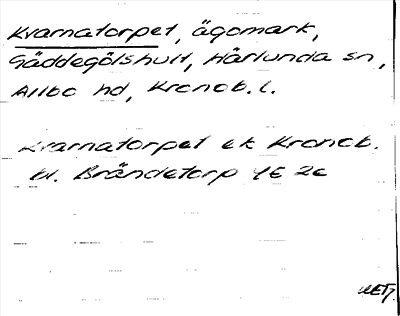 Kvarnatorpet, ägomark,
Gäddegölshult, Härlunda sn,
Allbo hd, Kronob. l.
Kvarnatorpet ek Kronob.
bl. Brändetorp 4E 2c